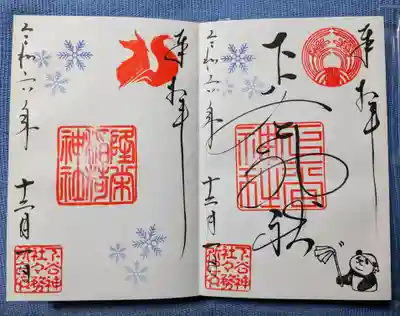 奉拝
下谷神社
下谷
神社
令和六年 十二月 一日
下谷神
社々務
奉拝
隆栄
稲荷
神社
令和六年 十二月 一日
下谷神
社々務